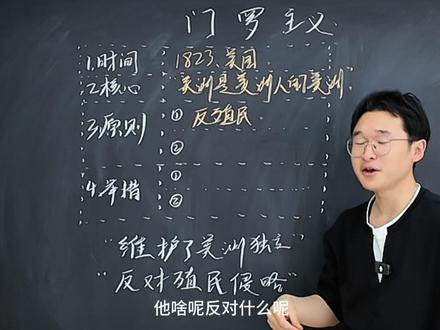 门罗主义
1.时间 1823、美国
2.核心 "美洲是美洲人的美洲"
3.原则 ① 反殖民
②
4.举措 ①
②
"维护了美洲独立"
"反对殖民侵略"
他啥呢反对什么呢